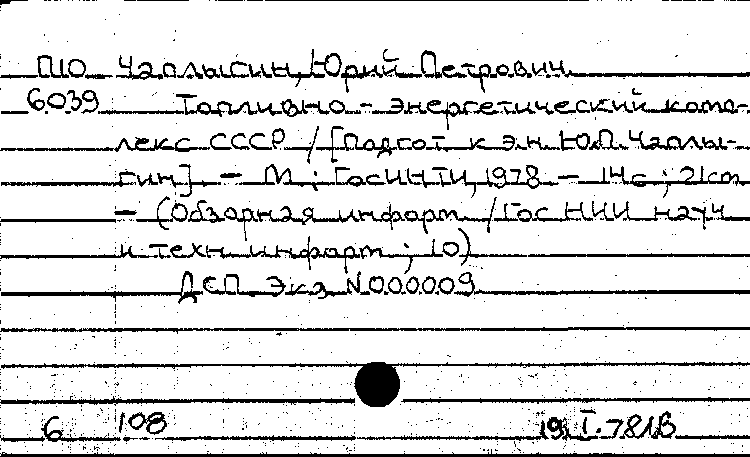 П10 Чаплыгин, Юрий Петрович.
6039 Топливно-энергетический комп-
лекс СССР / [Подгот. к.э.н. Ю.П. Чаплы-
гин]. - М.: ГосИНТИ, 1978. - 14с.; 21см.
- (Обзорная информ. / Гос НИИ науч.
и техн. информ.; 10)
ДСП. Экз. N000009.
6 108 19.I.781В